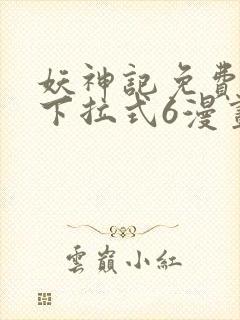 妖神記免費
下拉式6漫畫
雲巔小紅